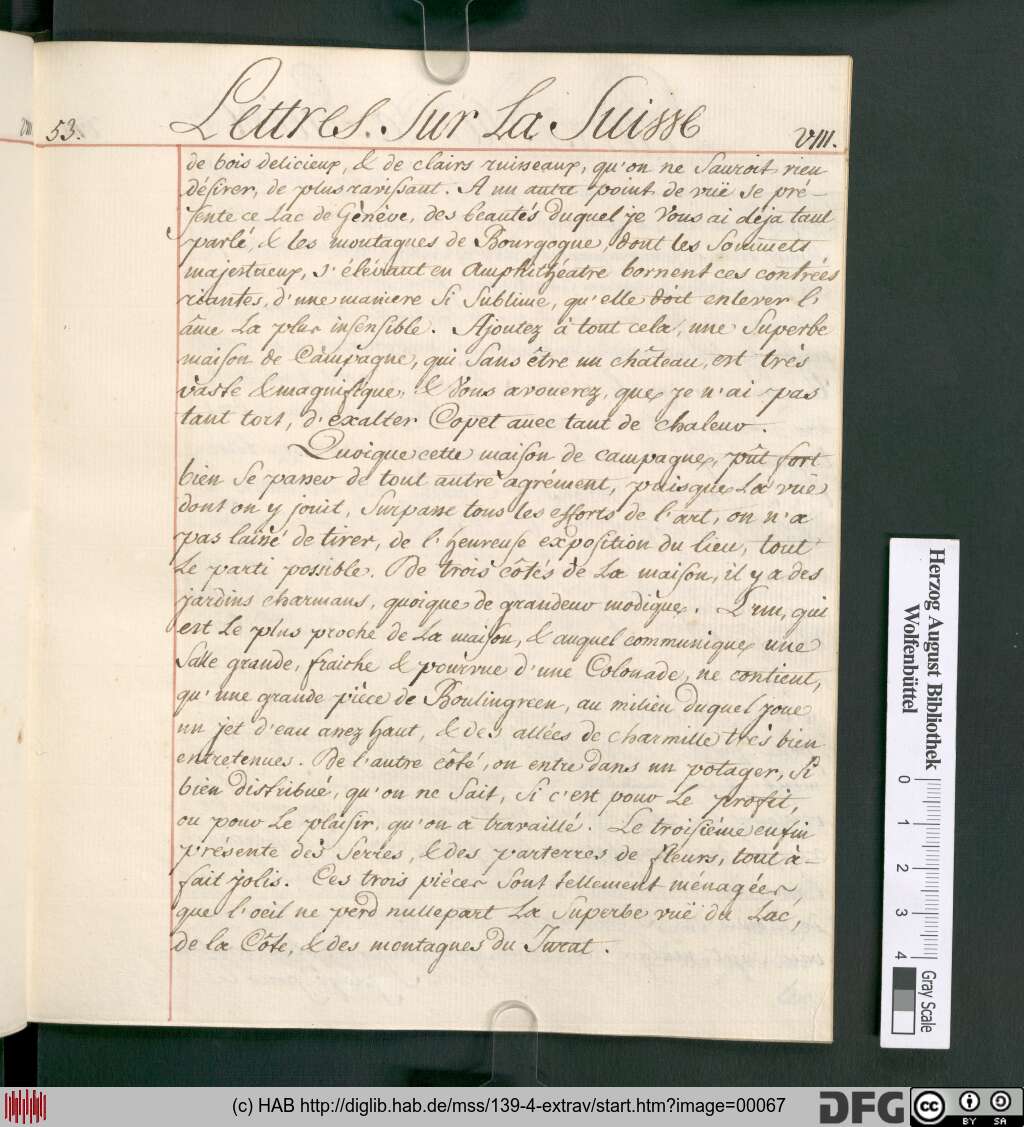 VIII.
53. Lettres. Sur La Suisse VIII.
de bois delicieux, & de clairs ruisseaux, qu'on ne Sauroit rien
désirer, de plus ravissant. A un autre point de vuë se pré-
sente ce Lac de Génève, des beautés duquel je Vous ai déja tant
parlé, & les montagnes de Bourgogne, dont les Sommets
majestueux, s'élévant en Amphithéatre bornent ces contrées
riantes, d'une maniere Si Sublime, qu'elle doit enlever l'
âme La plus insensible. Ajoutez à tout cela, une Superbe
maison de Câmpagne, qui Sans être un château, est très
vaste & magnifique, & Vous avouerez, que je n'ai pas
tant tort, d'exalter Copet avec tant de chaleur.
Quoique cette maison de campagne, pût fort
bien Se passer de tout autre agrément, puisque La vuë
dont on y jouit, Surpasse tous les efforts de l'art, on n'a
pas laissé de tirer, de l'heureuse exposition du lieu, tout
Le parti possible. De trois côtés de La maison, il y a des
jardins charmans, quoique de grandeur modique. L'un, qui
est Le plus proche de La maison, & auquel communique une
Salle grande, fraiche & pourvue d'une Colonade, ne contient,
qu'une grande pièce de Boulingreen, au milieu duquel joue
un jet d'eau assez haut, & des allées de charmille très bien
entretenues. De l'autre côté, on entre dans un potager, Si
bien distribué, qu'on ne Sait, Si c'est pour Le profit,
ou pour Le plaisir, qu'on a travaillé. Le troisiéme enfin
présente des Serres, & des parterres de fleurs, tout à-
fait jolis. Ces trois pièces Sont tellement ménagées
que l'oeil ne perd nullepart La Superbe vuë du Lac,
de la Côte, & des montagnes du Jurat.
Herzog August Bibliothek
Wolfenbüttel
0 1 2 3 4
Gray Scale
(c) HAB http://diglib.hab.de/mss/139-4-extrav/start.htm?image=00067
DFG
cc BY SA